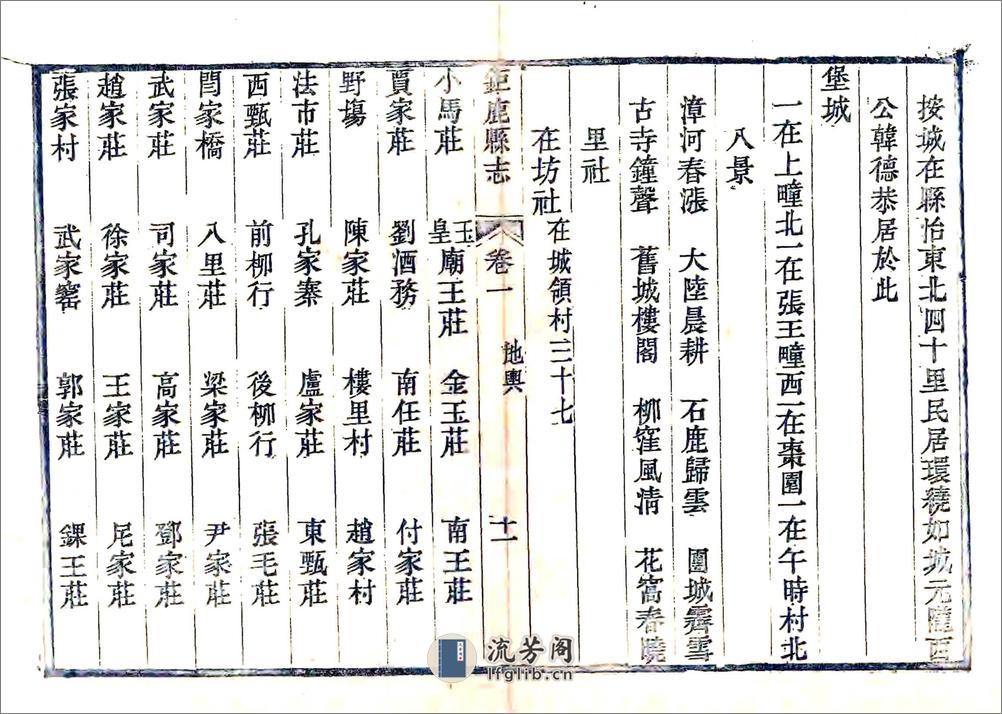 按城在縣怡東北四十里民居環繞如城元隴西
公韓德恭居於此
堡城
一在上疃北一在張王疃西一在棗園一在午時村北
八景
漳河春漲 大陸晨耕 石鹿歸雲 圍城霽雪
古寺鐘聲 舊城樓閣 柳窪風清 花窩春曉
里社
在坊社 在城領村三十七
鉅鹿縣志 卷一 地輿 十一
小馬莊 玉皇廟王莊 金玉莊 南王莊
賈家莊 劉酒務 南任莊 付家莊
野場 陳家莊 樓里村 趙家村
法市莊 孔家寨 盧家莊 東甄莊
西甄莊 前柳行 後柳行 張毛莊
閆家橋 八里莊 梁家莊 尹家莊
武家莊 司家莊 高家莊 鄧家莊
趙家莊 徐家莊 王家莊 尼家莊
張家村 武家窰 郭家莊 錁王莊
流芳阁
lfglib.cn